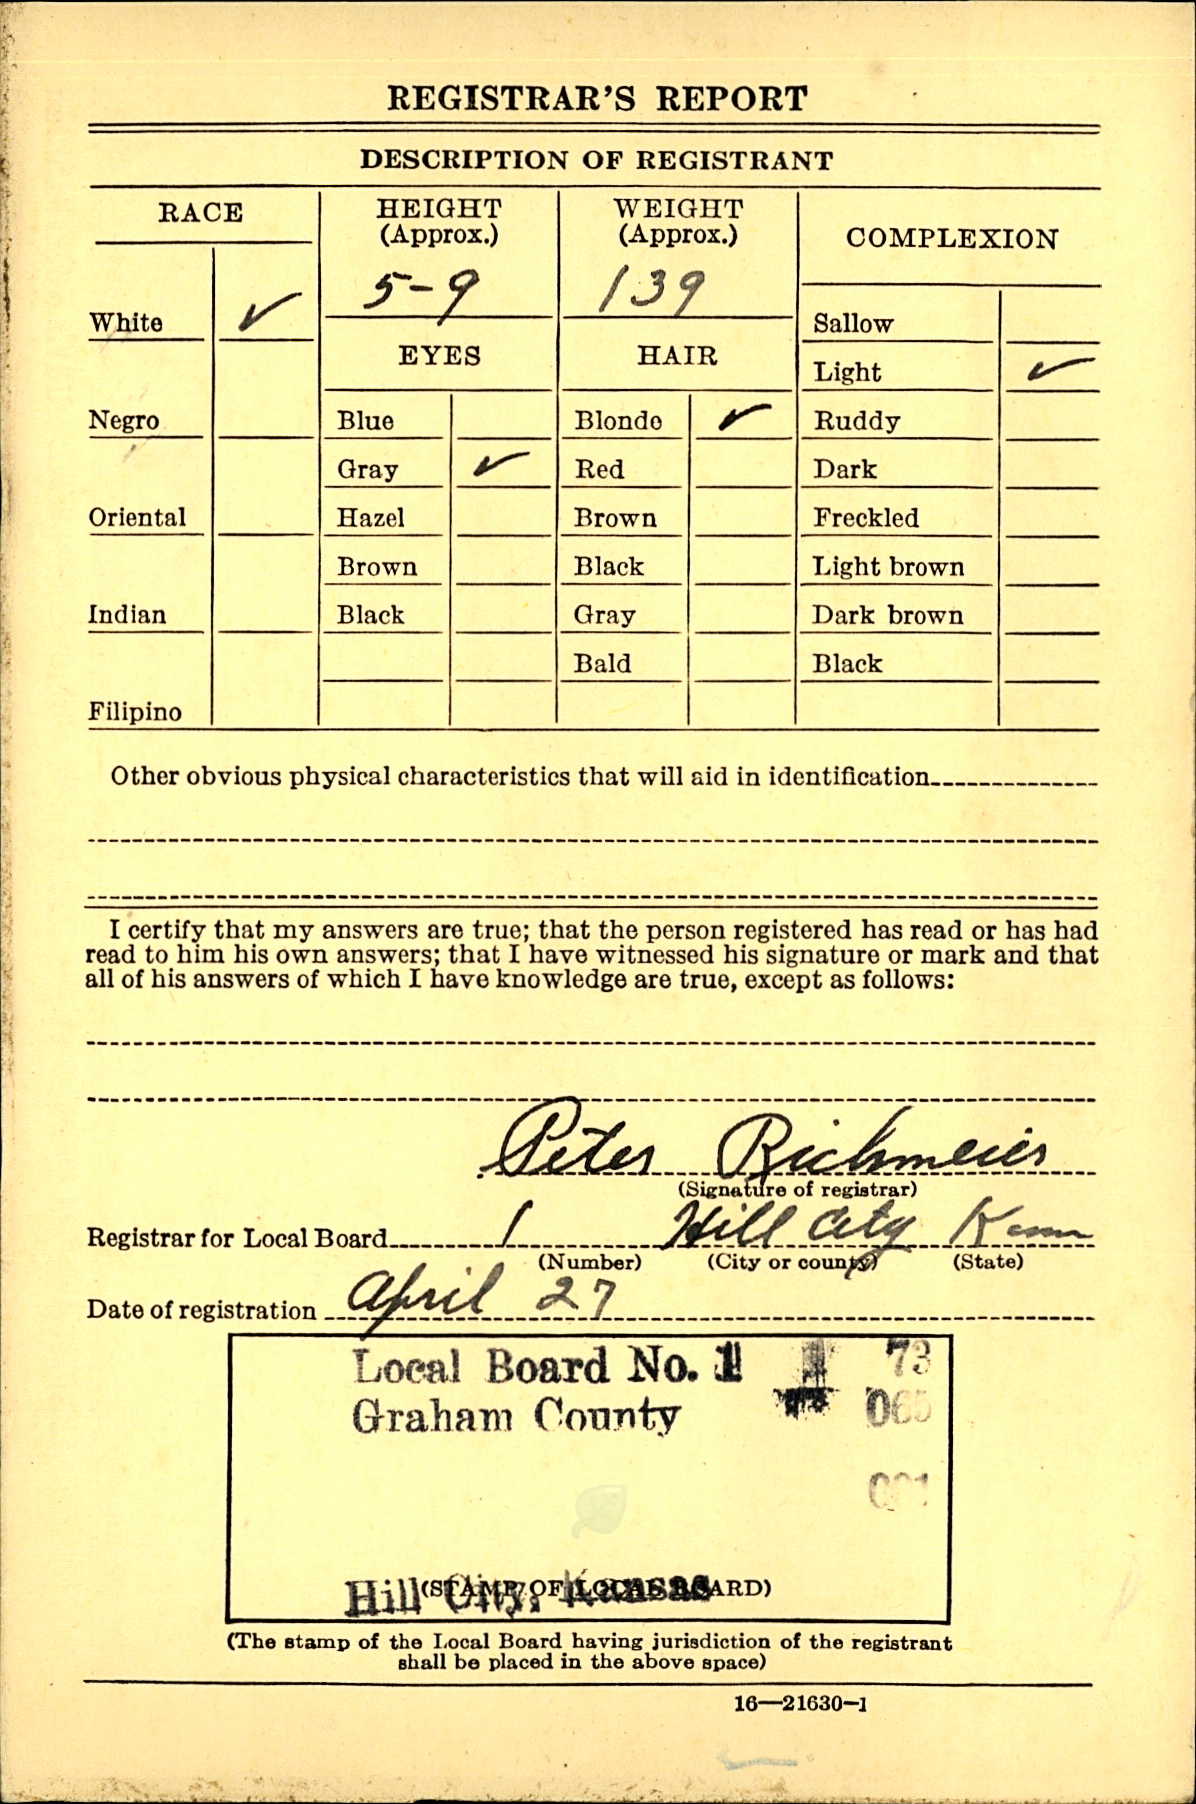 REGISTRAR'S REPORT
DESCRIPTION OF REGISTRANT
RACE
White ✓
Negro
Oriental
Indian
Filipino
HEIGHT
(Approx.)
5-9
WEIGHT
(Approx.)
139
EYES
Blue
Gray ✓
Hazel
Brown
Black
HAIR
Blonde ✓
Red
Brown
Black
Gray
Bald
COMPLEXION
Sallow
Light ✓
Ruddy
Dark
Freckled
Light brown
Dark brown
Black
Other obvious physical characteristics that will aid in identification
I certify that my answers are true; that the person registered has read or has had
read to him his own answers; that I have witnessed his signature or mark and that
all of his answers of which I have knowledge are true, except as follows:
Peter Richmeier
(Signature of registrar)
Registrar for Local Board 1 Hill City Kans
(Number) (City or county) (State)
Date of registration April 27
Local Board No. 1 73
Graham County 065
Hill City, Kansas
(STAMP OF LOCAL BOARD)
(The stamp of the Local Board having jurisdiction of the registrant
shall be placed in the above space)
16—21630-1